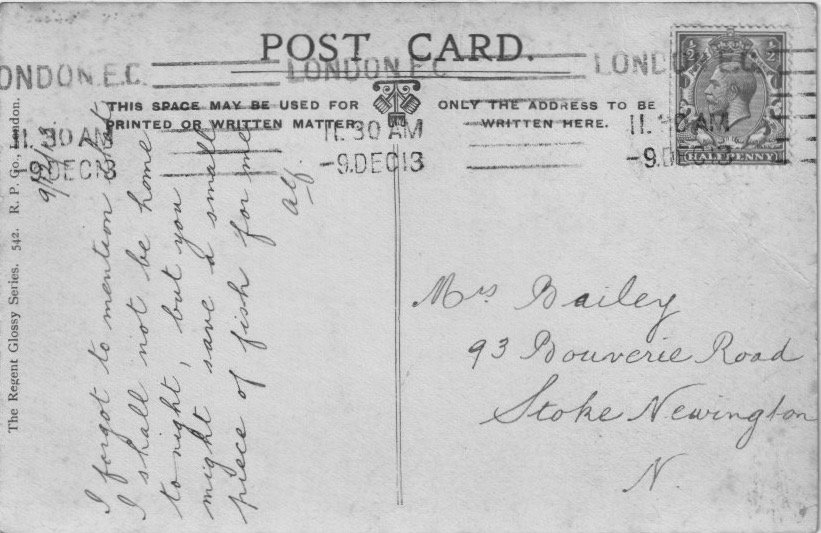 POST CARD.
LONDON.E.C. LONDON.E.C LONDON E.C.
THIS SPACE MAY BE USED FOR
PRINTED OR WRITTEN MATTER.
ONLY THE ADDRESS TO BE
WRITTEN HERE.
11.30 AM 11.30 AM 11.30 AM
-9.DEC13 -9.DEC13 -9.DEC13
½ ½
HALFPENNY
9/12/13
I forgot to mention that
I shall not be home
to night, but you
might save a small
piece of fish for me
Alf.
Mrs Bailey
93 Bouverie Road
Stoke Newington
N.
The Regent Glossy Series. 542. R. P. Co., London.